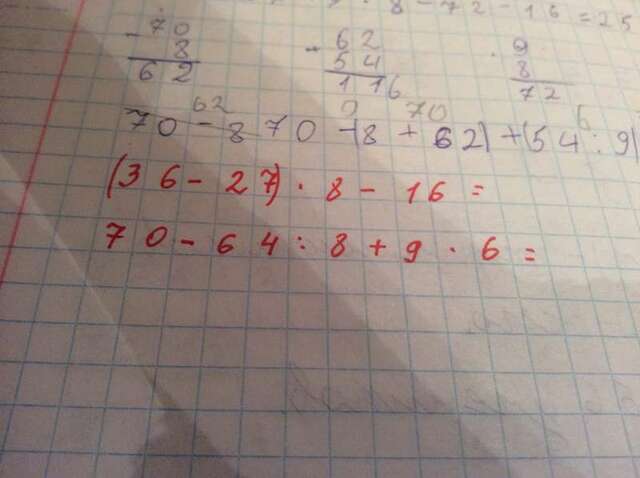 · 8 - 72 - 16 = 25
- 70 - 62 · 9
8 54 8
62 116 72
62 9 70 6
70 - 8 70 - (8 + 62) + (54 : 9)
(36 - 27) · 8 - 16 =
70 - 64 : 8 + 9 · 6 =